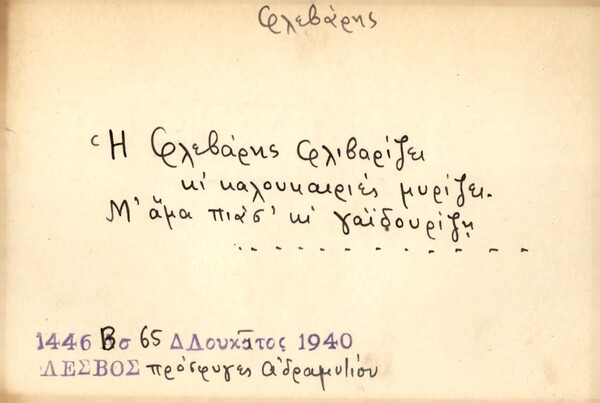 Φλεβάρης
Ἡ Φλεβάρης φλιβαρίζει
κἰ καλουκαιριές μυρίζει.
Μ' ἄμα πιάσ' κἰ γαϊδουρίζῃ
. . . . . . . . . . . .
1446 Βσ 65 ΔΔουκᾶτος 1940
ΛΕΣΒΟΣ πρόσφυγες Ἀδραμυτίου